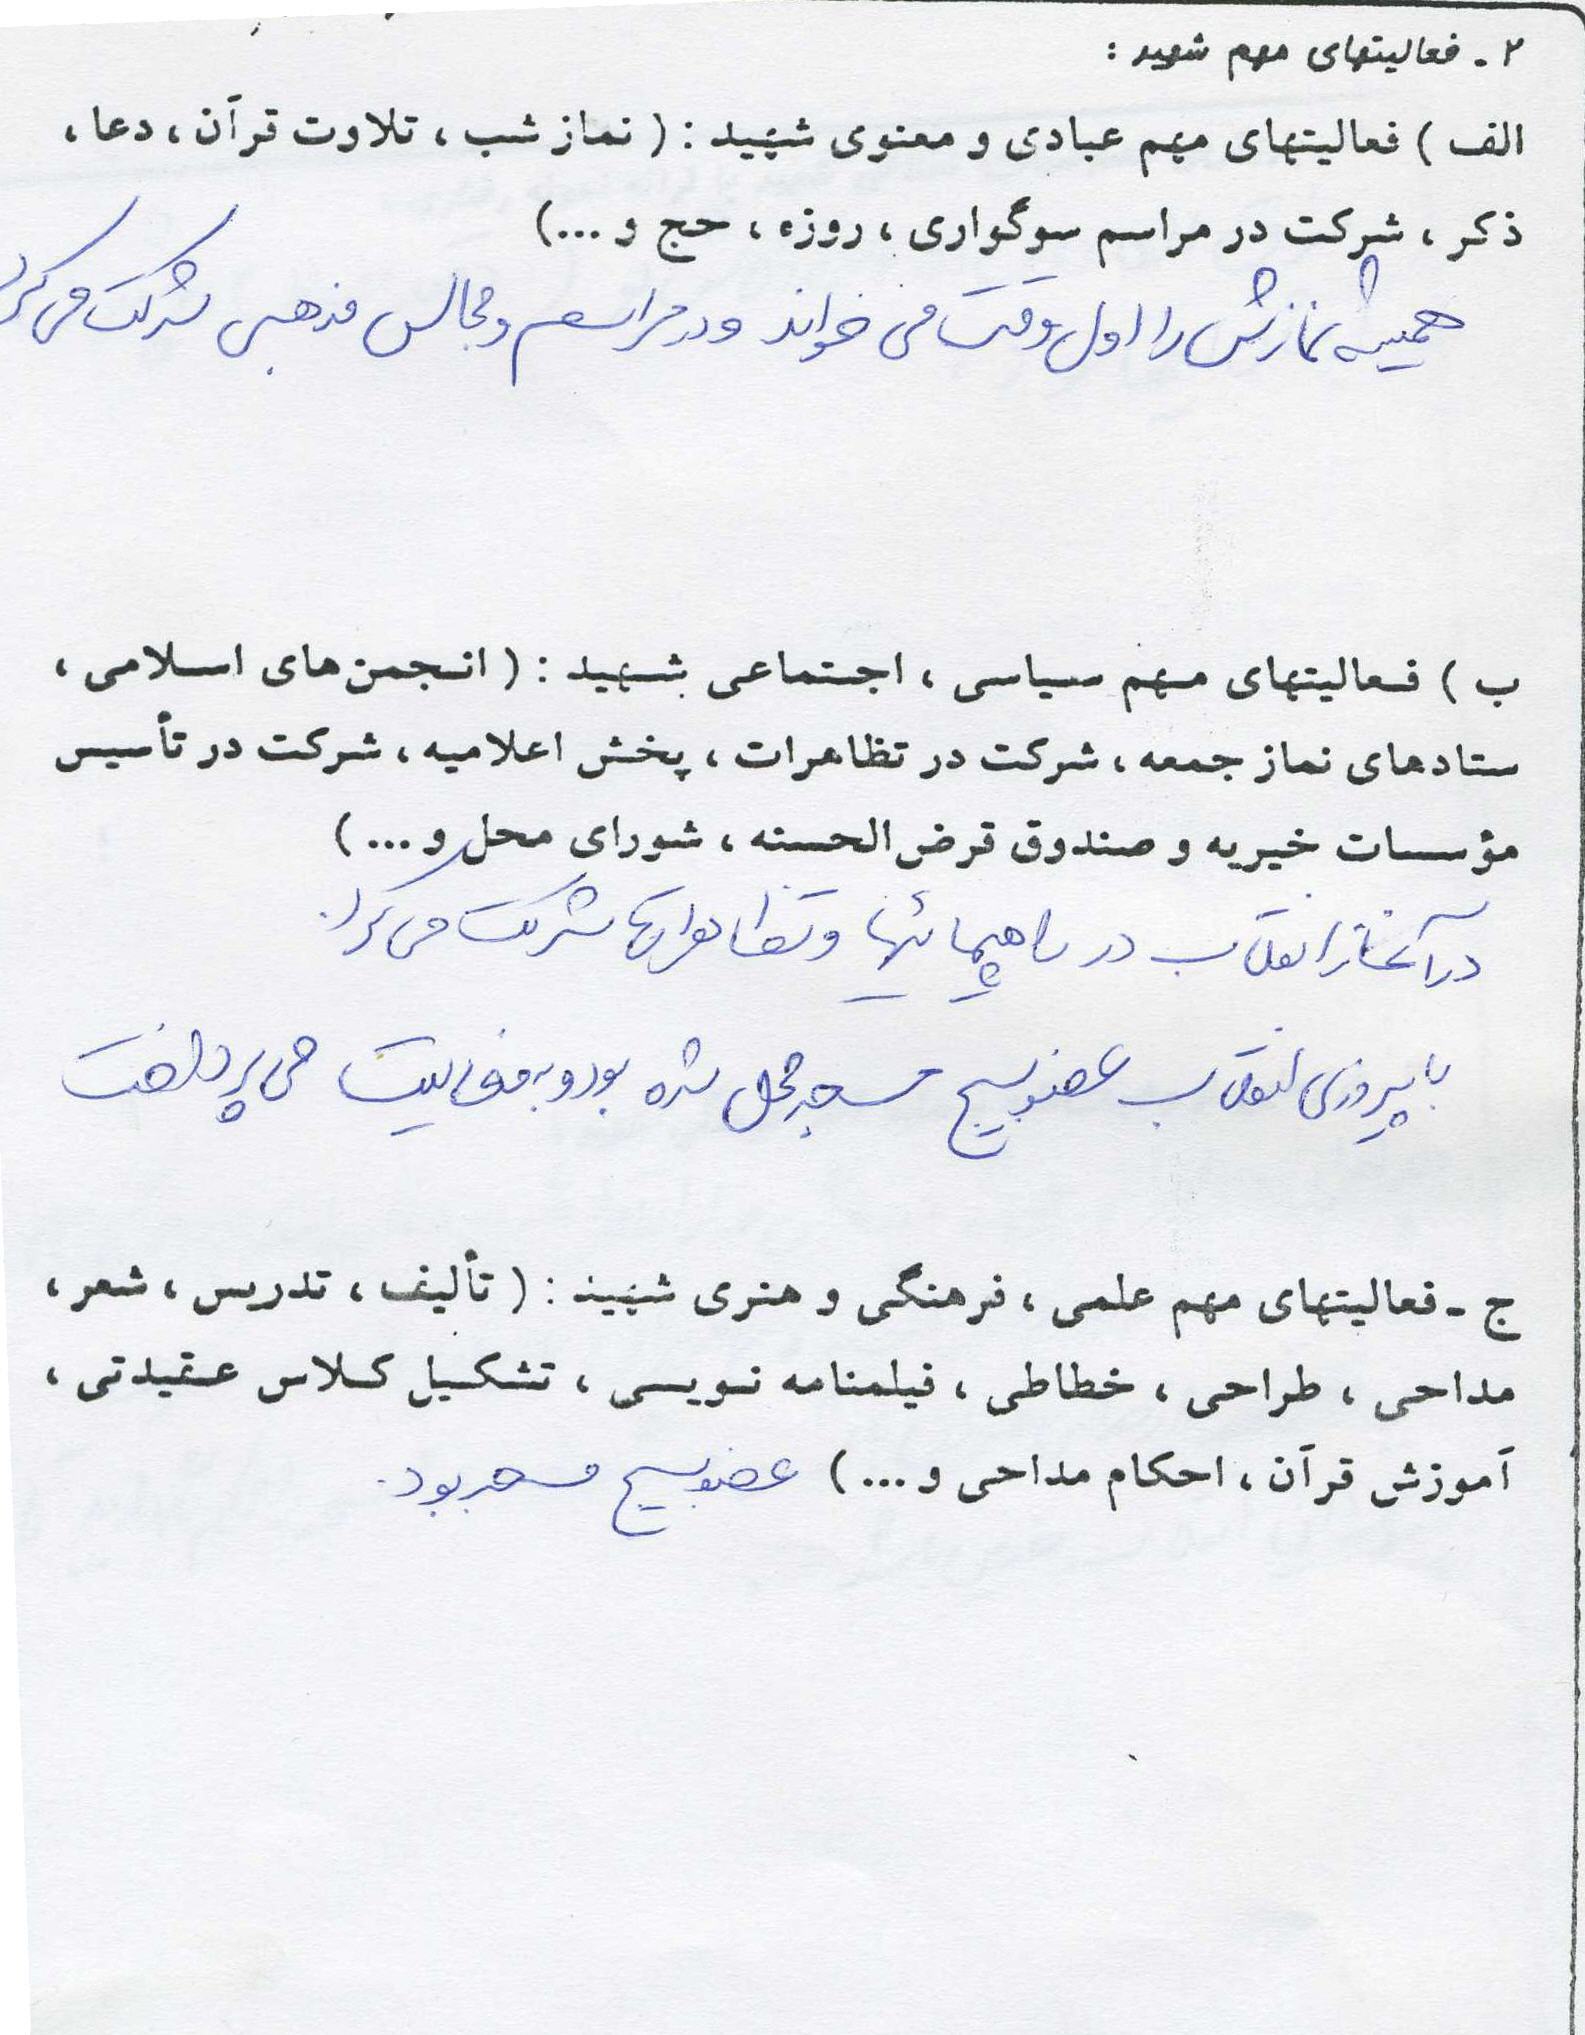 ۲ ـ فعالیتهای مهم شهید :
الف ) فعالیتهای مهم عبادی و معنوی شهید : ( نماز شب ، تلاوت قرآن ، دعا ،
ذکر ، شرکت در مراسم سوگواری ، روزه ، حج و ...)
همیشه نمازش را اول وقت می خواند و در مراسم و مجالس مذهبی شرکت می کرد
ب ) فعالیتهای مهم سیاسی ، اجتماعی شهید : ( انجمن‌های اسلامی ،
ستادهای نماز جمعه ، شرکت در تظاهرات ، پخش اعلامیه ، شرکت در تأسیس
مؤسسات خیریه و صندوق قرض‌الحسنه ، شورای محل و ... )
در آغاز انقلاب در راهپیمائیها و تظاهراتها شرکت می کرد.
با پیروزی انقلاب عضو بسیج مسجد محل شده بود و به فعالیت می پرداخت
ج ـ فعالیتهای مهم علمی ، فرهنگی و هنری شهید : ( تألیف ، تدریس ، شعر ،
مداحی ، طراحی ، خطاطی ، فیلمنامه نویسی ، تشکیل کلاس عقیدتی ،
آموزش قرآن ، احکام مداحی و ... ) عضو بسیج مسجد بود.